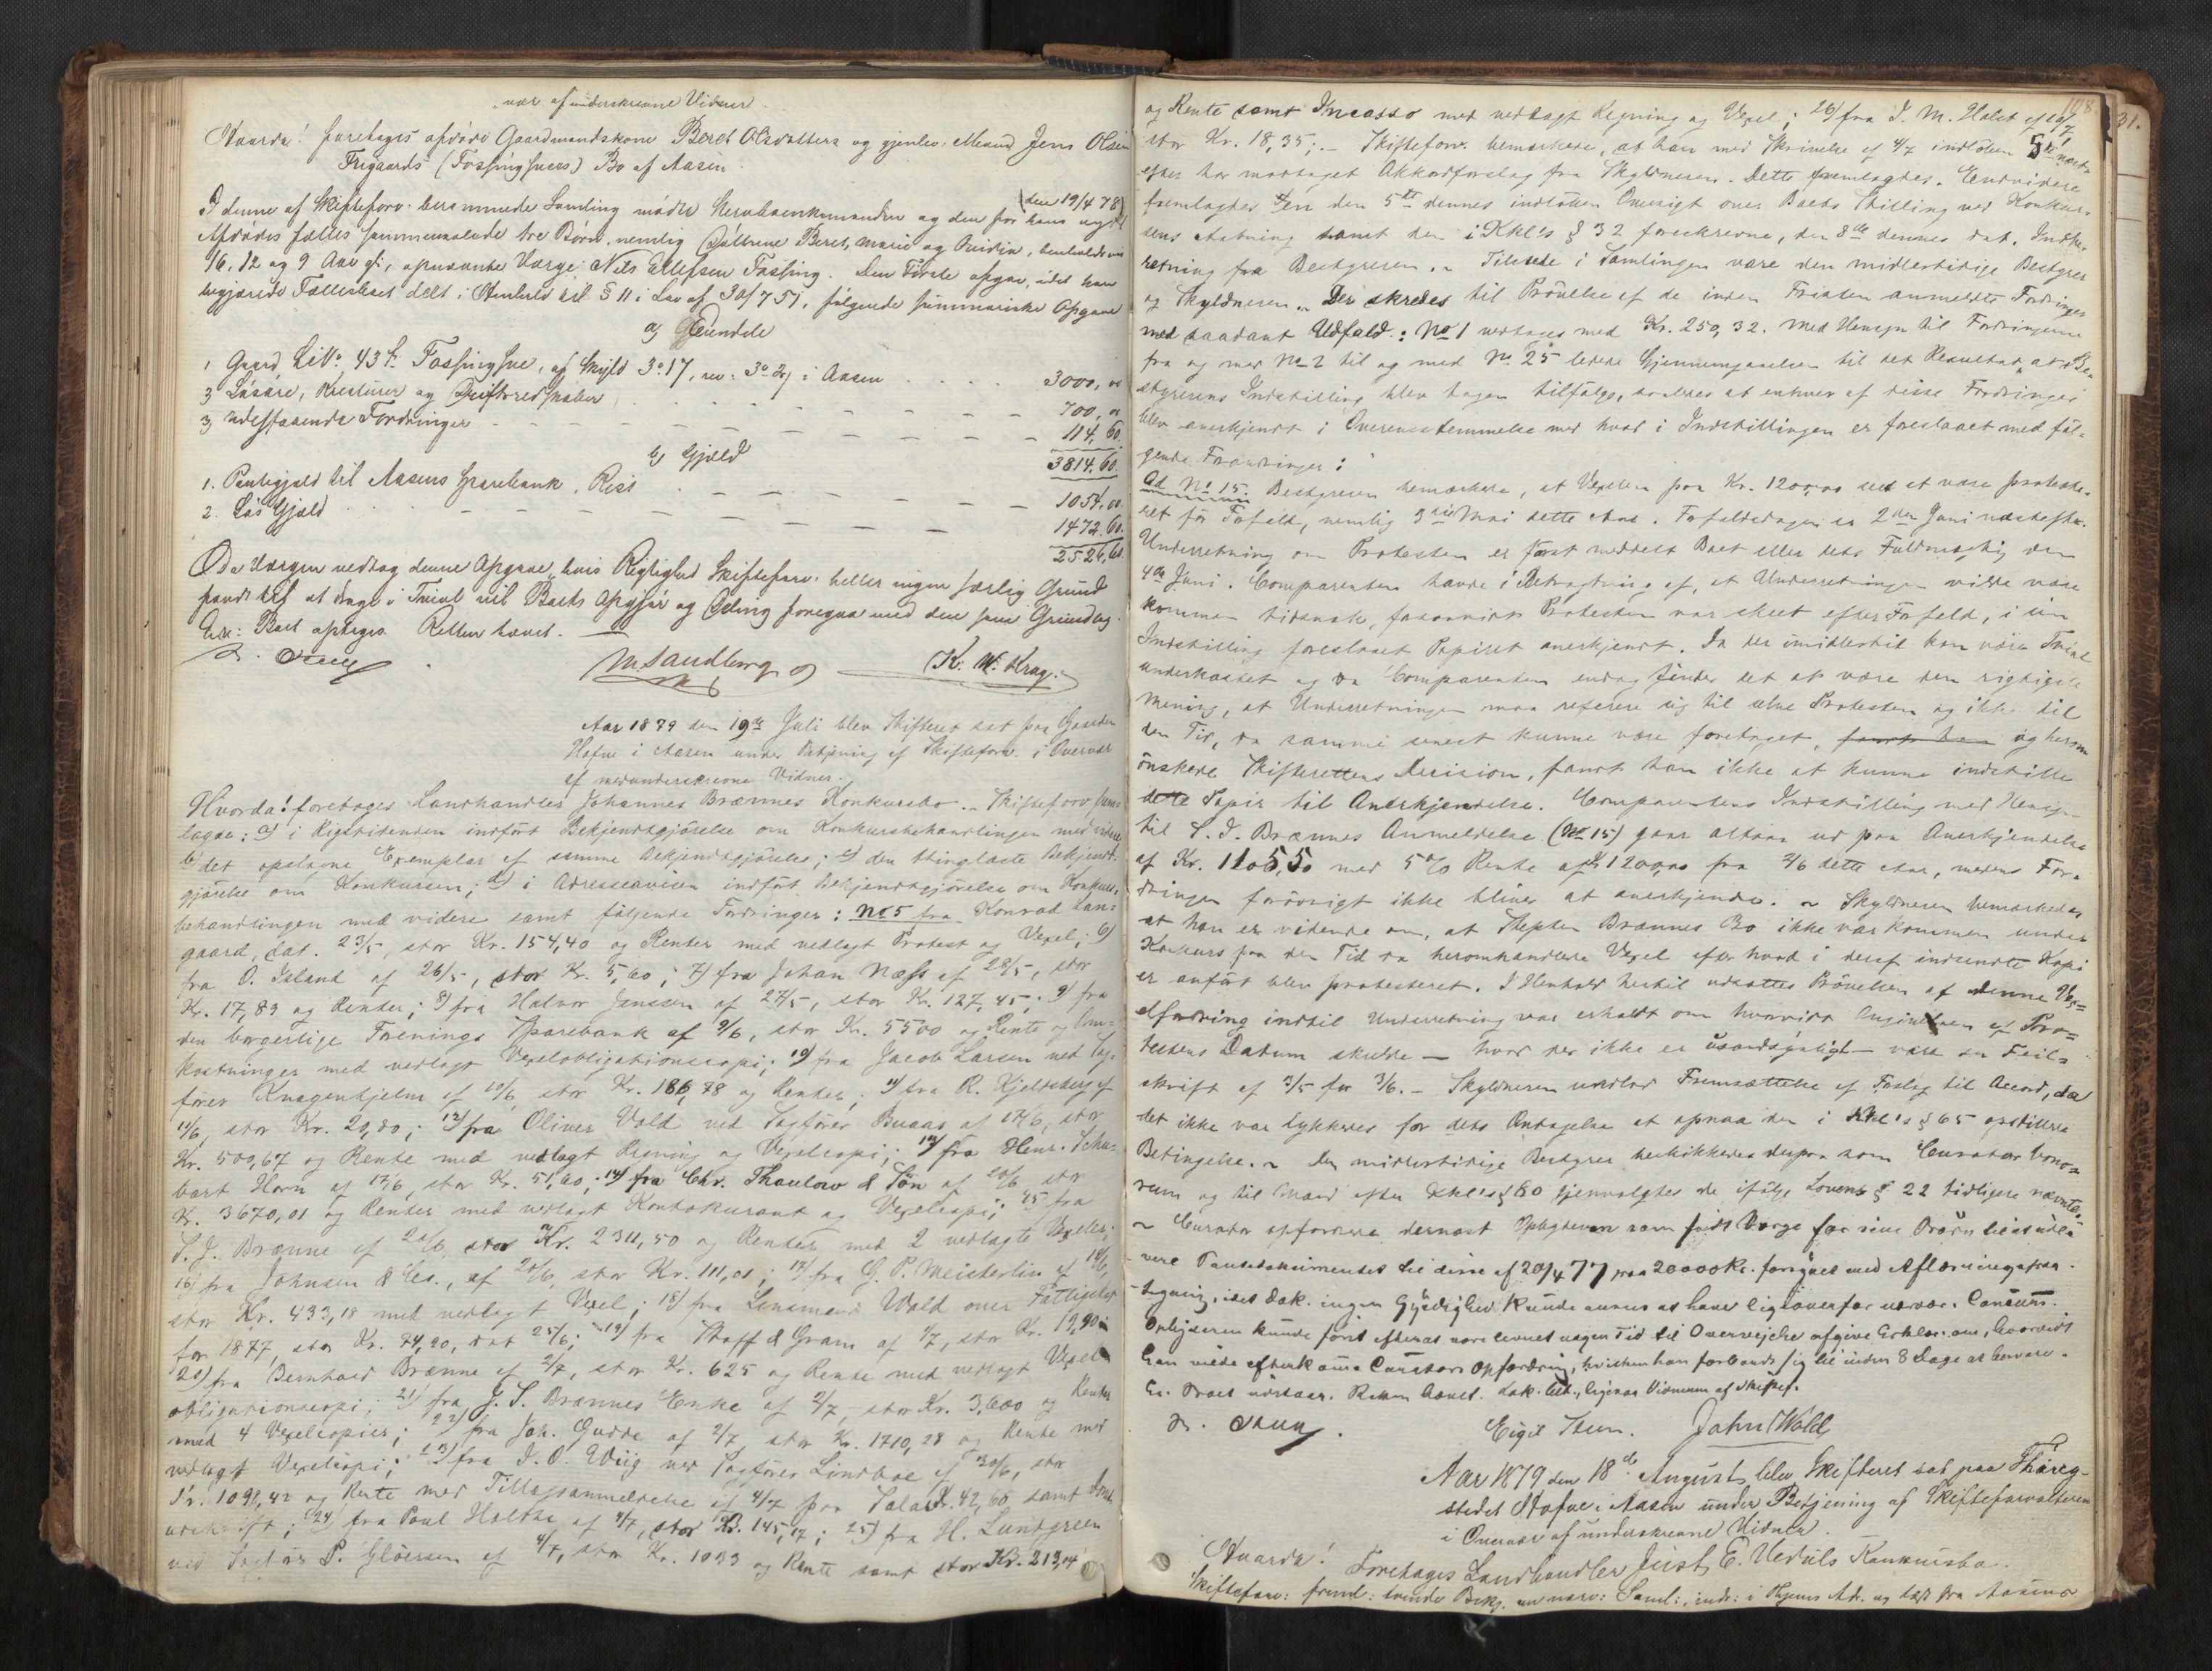 vær af underskrevne Vidner
Hvorda! foretages afdøde Gaardmandskone Beret Olsdatters og gjenlev. Mand Jens Olsen
Fregaards (Fossingsues) Bo af Aasen
I denne af Skifteforv. berammede Samling mødte Stervboenkemanden og den for hans og
(den 19/4 78)
Afdødes fælles sammenavlede tre Børn, nemlig Døttrene Beret, Marie og
16, 12 og 9 Aar gl., opnævnte Værge, Nils Ellefsen Fossing. Den Første opgav, idet han
begjærede Fællesboet delt i Henhold til § 11 i Lov af 30/7 51, følgende summariske Opgave
a) Eiendele
1 Gaard, LNo 43 b. Fossingsue, af Skyld 3 o 17, rev. i Aasen 3000,00
2 Løsøre, Kreaturer og Driftsredskaber 700,00
3 Udestaaende Fordringer 114,60.
3814.60.
b) Gjæld
1. Pantegjæld til Aasens Sparebank, Rest 1054.00
2. Løs Gjæld 1472.60.
2526,60
Da Værgen vedtog denne Opgave, hvis Rigtighed Skifteforv. heller ingen særlig Grund
fandt til at drage i Tvivl vil Boets Opgjør og Deling foregaa med den som Grundlag.
Er: Boet optages. Retten hævet.
M Sandberg K. M. Krag.
Aar 1879 den 19de Juli blev Skifteret sat paa Gaarden
Hofve i Aasen under Betjening af Skifteforv. i Overvær
af medunderskrevne Vidner.
Hvorda! foretages Landhandler Johannes Brænnes Konkursbo. Skifteforv. frem-
lagde: a) i Rigstidenden indført Bekjendtgjørelse om Konkursbehandlingen med videre
b) det opslagne Exemplar af samme Bekjendtgjørelse; c) den thinglæste Bekjendt-
gjørelse om Konkursen; d) i Adresseavisen indført Bekjendtgjørelse om Konkurs-
behandlingen med videre samt følgende Fordringer: No 5 fra Konrad Lan-
gaard, dat. 23/5, stor Kr. 154,40 og Renter med vedlagt Protest og Vexel; 6)
fra O. Island af 26/5, stor Kr. 5,60; 7) fra Johan Næss af 28/5, stor
Kr. 17,83 og Renter; 8) fra Halvor Jenssen af 27/5, stor Kr. 127,45; 9) fra
den borgerlige Forenings Sparebank af 9/6, stor Kr. 5500 og Rente og Om-
kostninger med vedlagt Vexelobligationscopi; 10) fra Jacob Larsen ved Sag-
fører Knagenhjelm af 10/6 stor Kr. 186,78 og Renter; 11) fra R. Kjeldsberg af
11/6, stor Kr. 20,80; 12) fra Oliver Vold ved Sagfører Buaas af 17/6, stor
Kr. 500,67 og Rente med vedlagt Regning og Vexelcopi; 13) fra Henr. Schu-
bart Horn af 17/6, stor Kr. 51,60; 14) fra Chr. Thaulow & Søn af 20/6 stor
Kr. 3670,01 og Renter med vedlagt Kontokurant og Vexelcopi; 15 fra
S. J. Brænne af 20/6, stor Kr. 2311,50 og Renter med 2 vedlagte Vexeler;
16) fra Johnsen & Co., af 20/6, stor Kr. 111,01; 17) fra G. P. Meisterlin af 18/6,
stor Kr. 433,18 med vedlagt Vexel; 18) fra Lensmand Wold over Fattigskat
for 1877, stor Kr. 74,20, dat 25/6; 19) fra Hoff & Gram af 1/7, stor Kr. 19,90;
20) fra Bernhard Brænne af 2/7, stor Kr. 625 og Rente med vedlagt Vexel-
obligationscopi; 21) fra J. S. Brænnes Enke af 2/7, stor Kr. 3,600 og Renter
med 4 Vexelcopier; 22) fra Joh. Gudde af 2/7 stor Kr. 1710,28 og Rente med
vedlagt Vexelcopi; 23) fra J. O. Wiig ved Sagfører Lindboe af 30/6, stor
Kr. 1098,42 og Rente med Tillægsanmeldelse af 4/7 paa Kr. 42,68 samt
udskrift; 24) fra Paul Holthe af 4/7, stor Kr. 145,17; 25) fra H. Lundgreen
ved Sagfør. P. Gløersen af 4/7, stor Kr. 1033 og Rente samt stor Kr. 213,14
108
31.
og Rente samt Incasso med vedlagt Regning og Vexel; 26) fra J. M. Holst af
stor Kr. 18,35; - Skifteforv. bemærkede, at han med Skrivelse af 4/7 indkommen
efter har modtaget Akkordforslag fra Skyldneren. Dette fremlagdes. Endvidere
fremlagdes en den 5te dennes indkommen Oversigt over Boets Stilling ved Konkur-
sens Aabning samt den i Kkl's § 32 foreskrevne, den 8de dennes dat. Indbe-
retning fra Bestyreren. Tilstede i Samlingen vare den midlertidige Bestyrer
og Skyldneren. Der skredes til Prøvelse af de inden Fristen anmeldte Fordringer
med saadant Udfald: No 1 vedtages med Kr. 250,32. Med Hensyn til Fordringerne
fra og med No 2 til og med No 25 ledede Gjennemgaaelsen til det Resultat, at Be-
styrerens Indstilling blev tagen tilfølge, saaledes at enhver af disse Fordringer
blev anerkjendt i Overensstemmelse med hvad i Indstillingen er foreslaaet med føl-
gende Forandringer:
Ad No 15. Bestyreren bemærkede, at Vexelen paa Kr. 1200,00 sees at være proteste-
ret før Forfald, nemlig 3die Mai dette Aar. Forfaldsdagen er 2den Juni næstefter.
Underretning om Protesten er først meddelt Boet eller dets Fuldmægtig den
4de Juni. Comparenten havde i Betragtning af, at Underretningen vilde være
kommen tidsnok, forsaavidt Protesten var skeet efter Forfald, i sin
Indstilling foreslaaet Papiret anerkjendt. Da det imidlertid kan være Tvivl
underkastet og da Comparenten endog finder det at være den rigtigste
Mening, at Underretningen maa referere sig til selve Protesten og ikke til
den Tid, da samme senest kunne være foretaget, og herom
ønskede Skifterettens Decision, fandt han ikke at kunne indstille
dette Papir til Anerkjendelse. Comparentens Indstilling med Hensyn
til S. J. Brænnes Anmeldelse (No 15) gaar altsaa ud paa Anerkjendelse
af Kr. 1105,50 med 5% Rente af 1200,00 fra 2/6 dette Aar, medens For-
dringen forøvrigt ikke bliver at anerkjende. Skyldneren bemærkede,
at han er vidende om, at Stephen Brænnes Bo ikke var kommen under
Konkurs paa den Tid da heromhandlede Vexel efter hvad i deraf indsendte Kopi
er anført blev protesteret. I Henhold hertil udsattes Prøvelsen af denne Vex-
elfordring indtil Underretning var erholdt om hvorvidt Angivelsen af Pro-
testens Datum skulde — hvad der ikke er usandsynligt — være en Feil-
skrift af 3/5 for 3/6. - Skyldneren undlod Fremsættelse af Forslag til Accord, da
det ikke var lykkedes for dets Antagelse at opnaa den i Kkl's § 65 opstillede
Betingelse. Den midlertidige Bestyrer beskikkedes derpaa som Curator bono-
rum og til efter Kkl's § 80 gjenvalgtes de ifølge Lovens § 22 tidligere nævnte.
Curator opfordrede dernæst Opbyderen som født Værge for sine Børn
vere Panteobligationen til disse af 20/4 77 paa 20000 Kr. forsynet med Aflæsningspaa-
tegning, idet Dok. ingen Gyldighed kunde ansees at have ligeoverfor nærvær. Concurs.
Opbyderen kunde først efterat være levnet nogen Tid til Overveielse afgive Erklær. om, hvorvidt
han vilde efterkomme Curators Opfordring, hvilken han forbandt sig til inden 8 Dage at besvare.
Er. Boet udstaar. Retten hævet.
Eigil Steen. John Wold
Aar 1879 den 18de August blev Skifteret sat paa Thing-
stedet Hofve i Aasen under Betjening af Skifteforvalteren
i Overvær af underskrevne Vidner.
Hvorda! Foretages Landhandler Just E. Veduls Konkursbo.
Skifteforv: freml: tvende Bekj. om nærv: Saml:, indr: i Thjems Adr. og læst fra Aasens